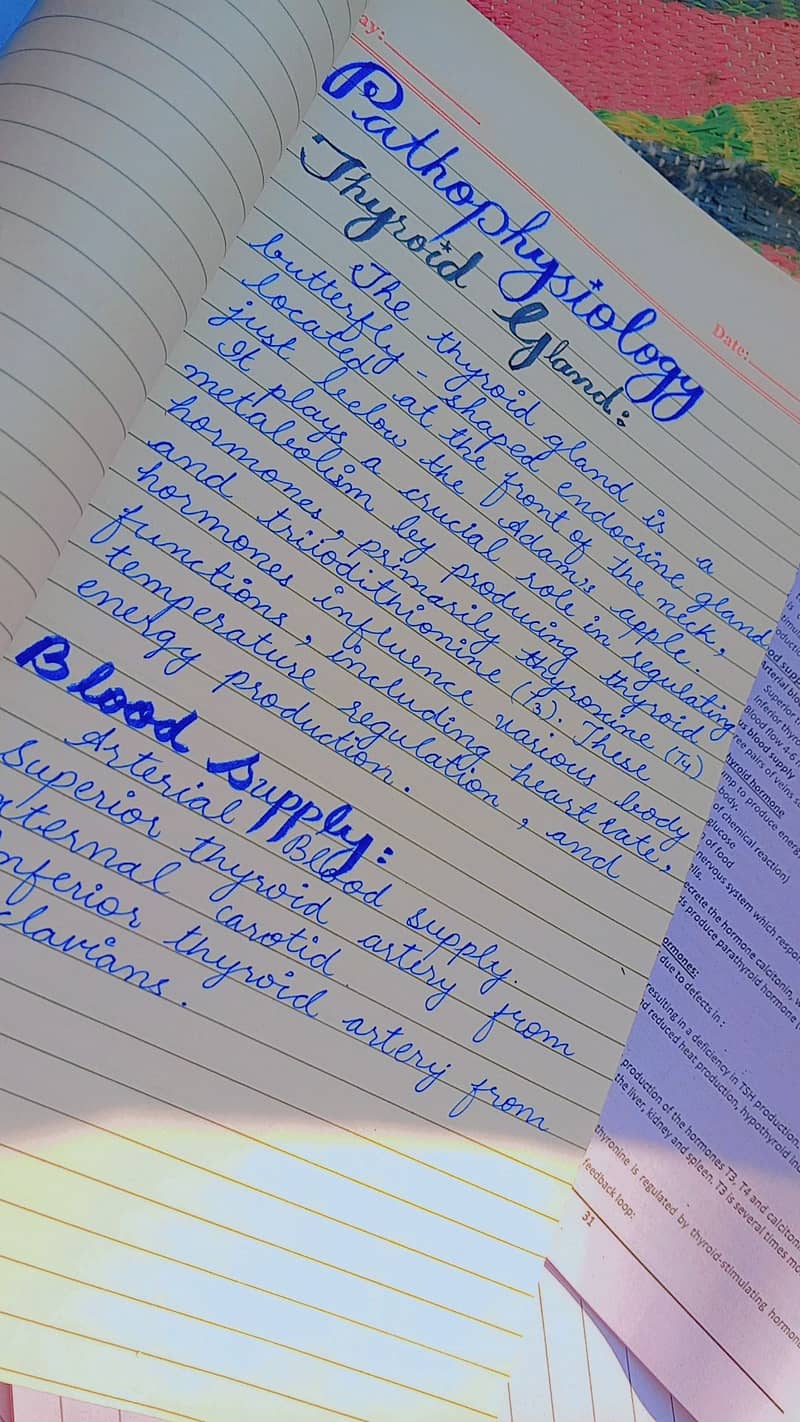 ay:
Date:
Pathophysiology
Thyroid Gland:
The thyroid gland is a
butterfly-shaped endocrine gland
located at the front of the neck,
just below the Adam's apple.
It plays a crucial role in regulating
metabolism by producing thyroid
hormones, primarily thyronine (T4)
and triiodithionine (T3). These
hormones influence various body
functions, including heart rate,
temperature regulation, and
energy production.
Blood Supply:
Arterial Blood supply.
Superior thyroid artery from
external carotid.
Inferior thyroid artery from
clavians.
Superior
Inferior thyr
Blood flow 4-6
is blood supply
ree pairs of veins
hyroid hormone
to produce energ
body,
of chemical reaction)
glucose
of food
nervous system which respon
ells.
ecrete the hormone calcitonin, w
s produce parathyroid hormone
ormones:
due to defects in :
resulting in a deficiency in TSH production,
nd reduced heat production, hypothyroid in
production of the hormones T3, T4 and calciton
the liver, kidney and spleen. T3 is several times mo
thyronine is regulated by thyroid-stimulating hormon
feedback loop:
31